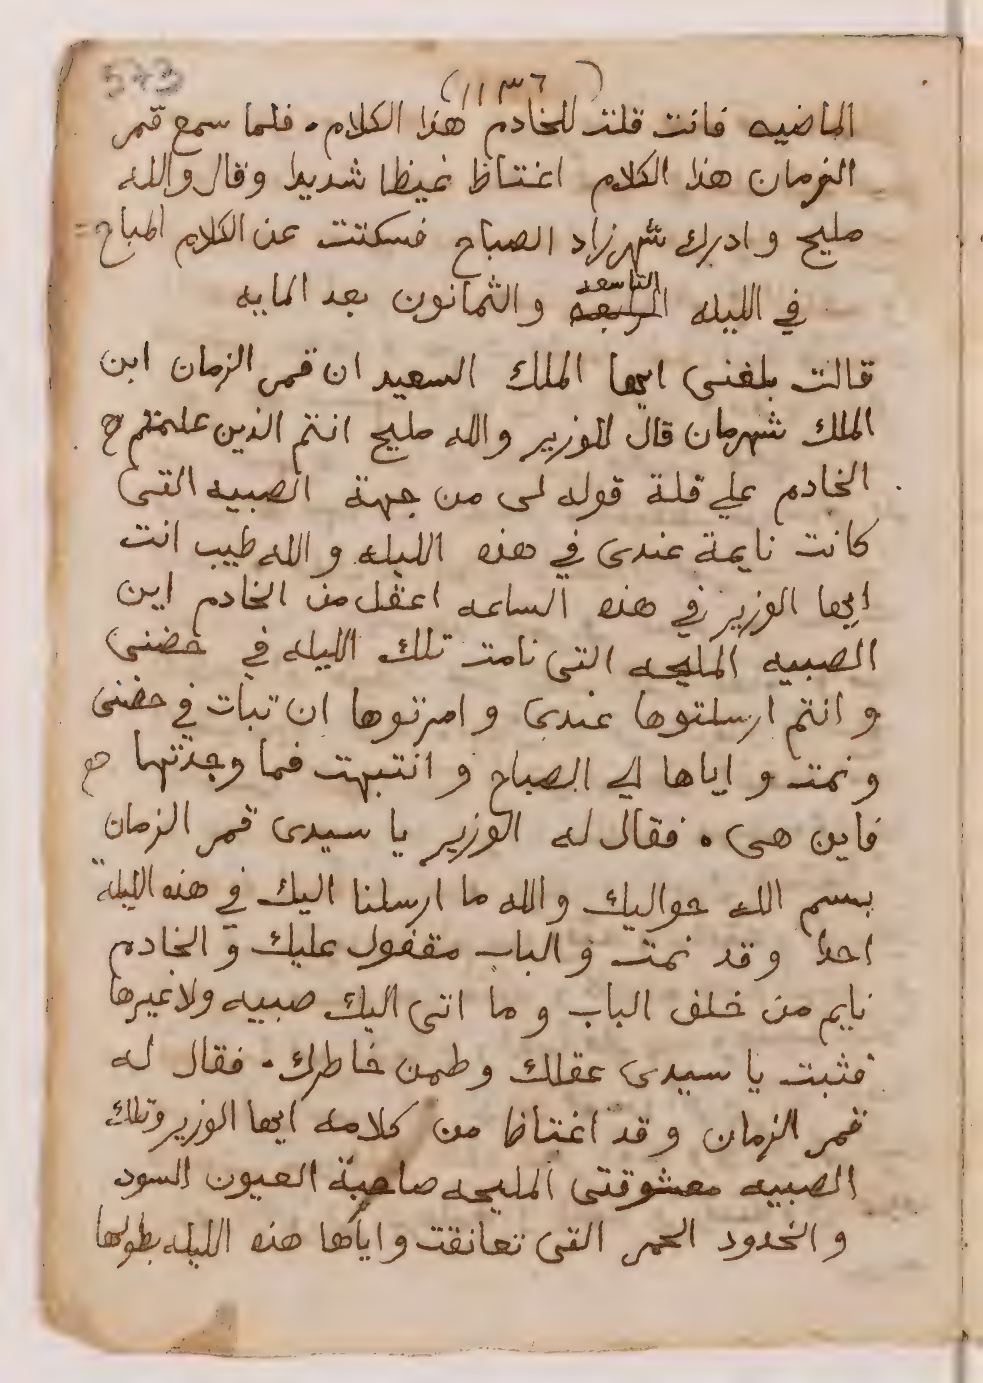 573
(١١٣٦)
الماضيه فانت قلت للخادم هذا الكلام. فلما سمع قمر
الزمان هذا الكلام اغتاظ غيظا شديدا وقال والله
مليح وادرك شهرزاد الصباح فسكتت عن الكلام المباح =
التاسعه
في الليله الرابعه والثمانون بعد المايه
قالت بلغنى ايها الملك السعيد ان قمر الزمان ابن
الملك شهرمان قال للوزير والله مليح انتم الذين علمتم
الخادم علي قلة قوله لى من جهة الصبيه التى
كانت نايمة عندى في هذه الليله والله طيب انت
ايها الوزير في هذه الساعه اعقل من الخادم اين
الصبيه المليحه التى نامت تلك الليله في حضنى
و انتم ارسلتوها عندى و امرتوها ان تبات في حضنى
و نمت و اياها الي الصباح و انتبهت فما وجدتها
فاين هى . فقال له الوزير يا سيدى قمر الزمان
بسم الله حواليك والله ما ارسلنا اليك في هذه الليله
احدا وقد نمت و الباب مقفول عليك و الخادم
نايم من خلف الباب و ما اتى اليك صبيه ولاغيرها
فثبت يا سيدى عقلك وطمن خاطرك. فقال له
قمر الزمان وقد اغتاظ من كلامه ايها الوزير وتلك
الصبيه معشوقتى المليحه صاحبة العيون السود
و الخدود الحمر التى تعانقت واياها هذه الليله بطولها